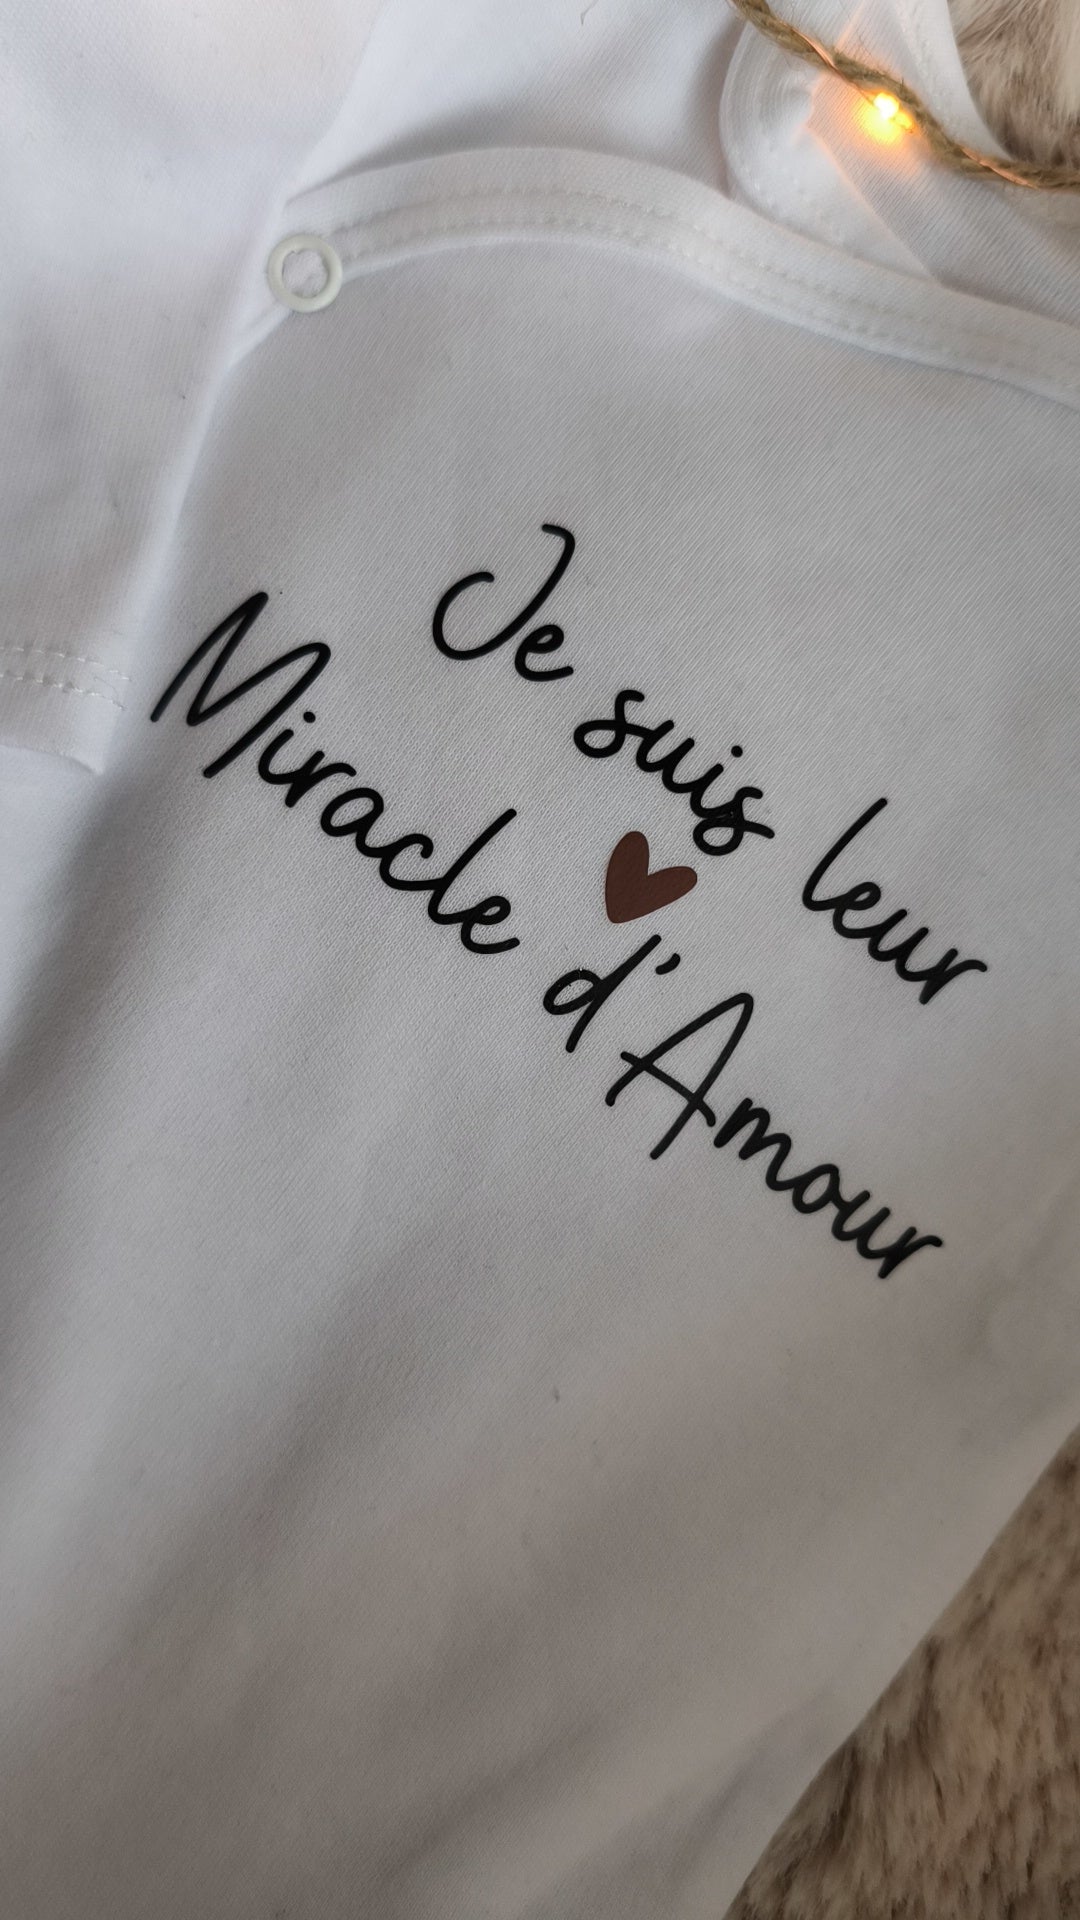 Je suis leur
Miracle d'Amour